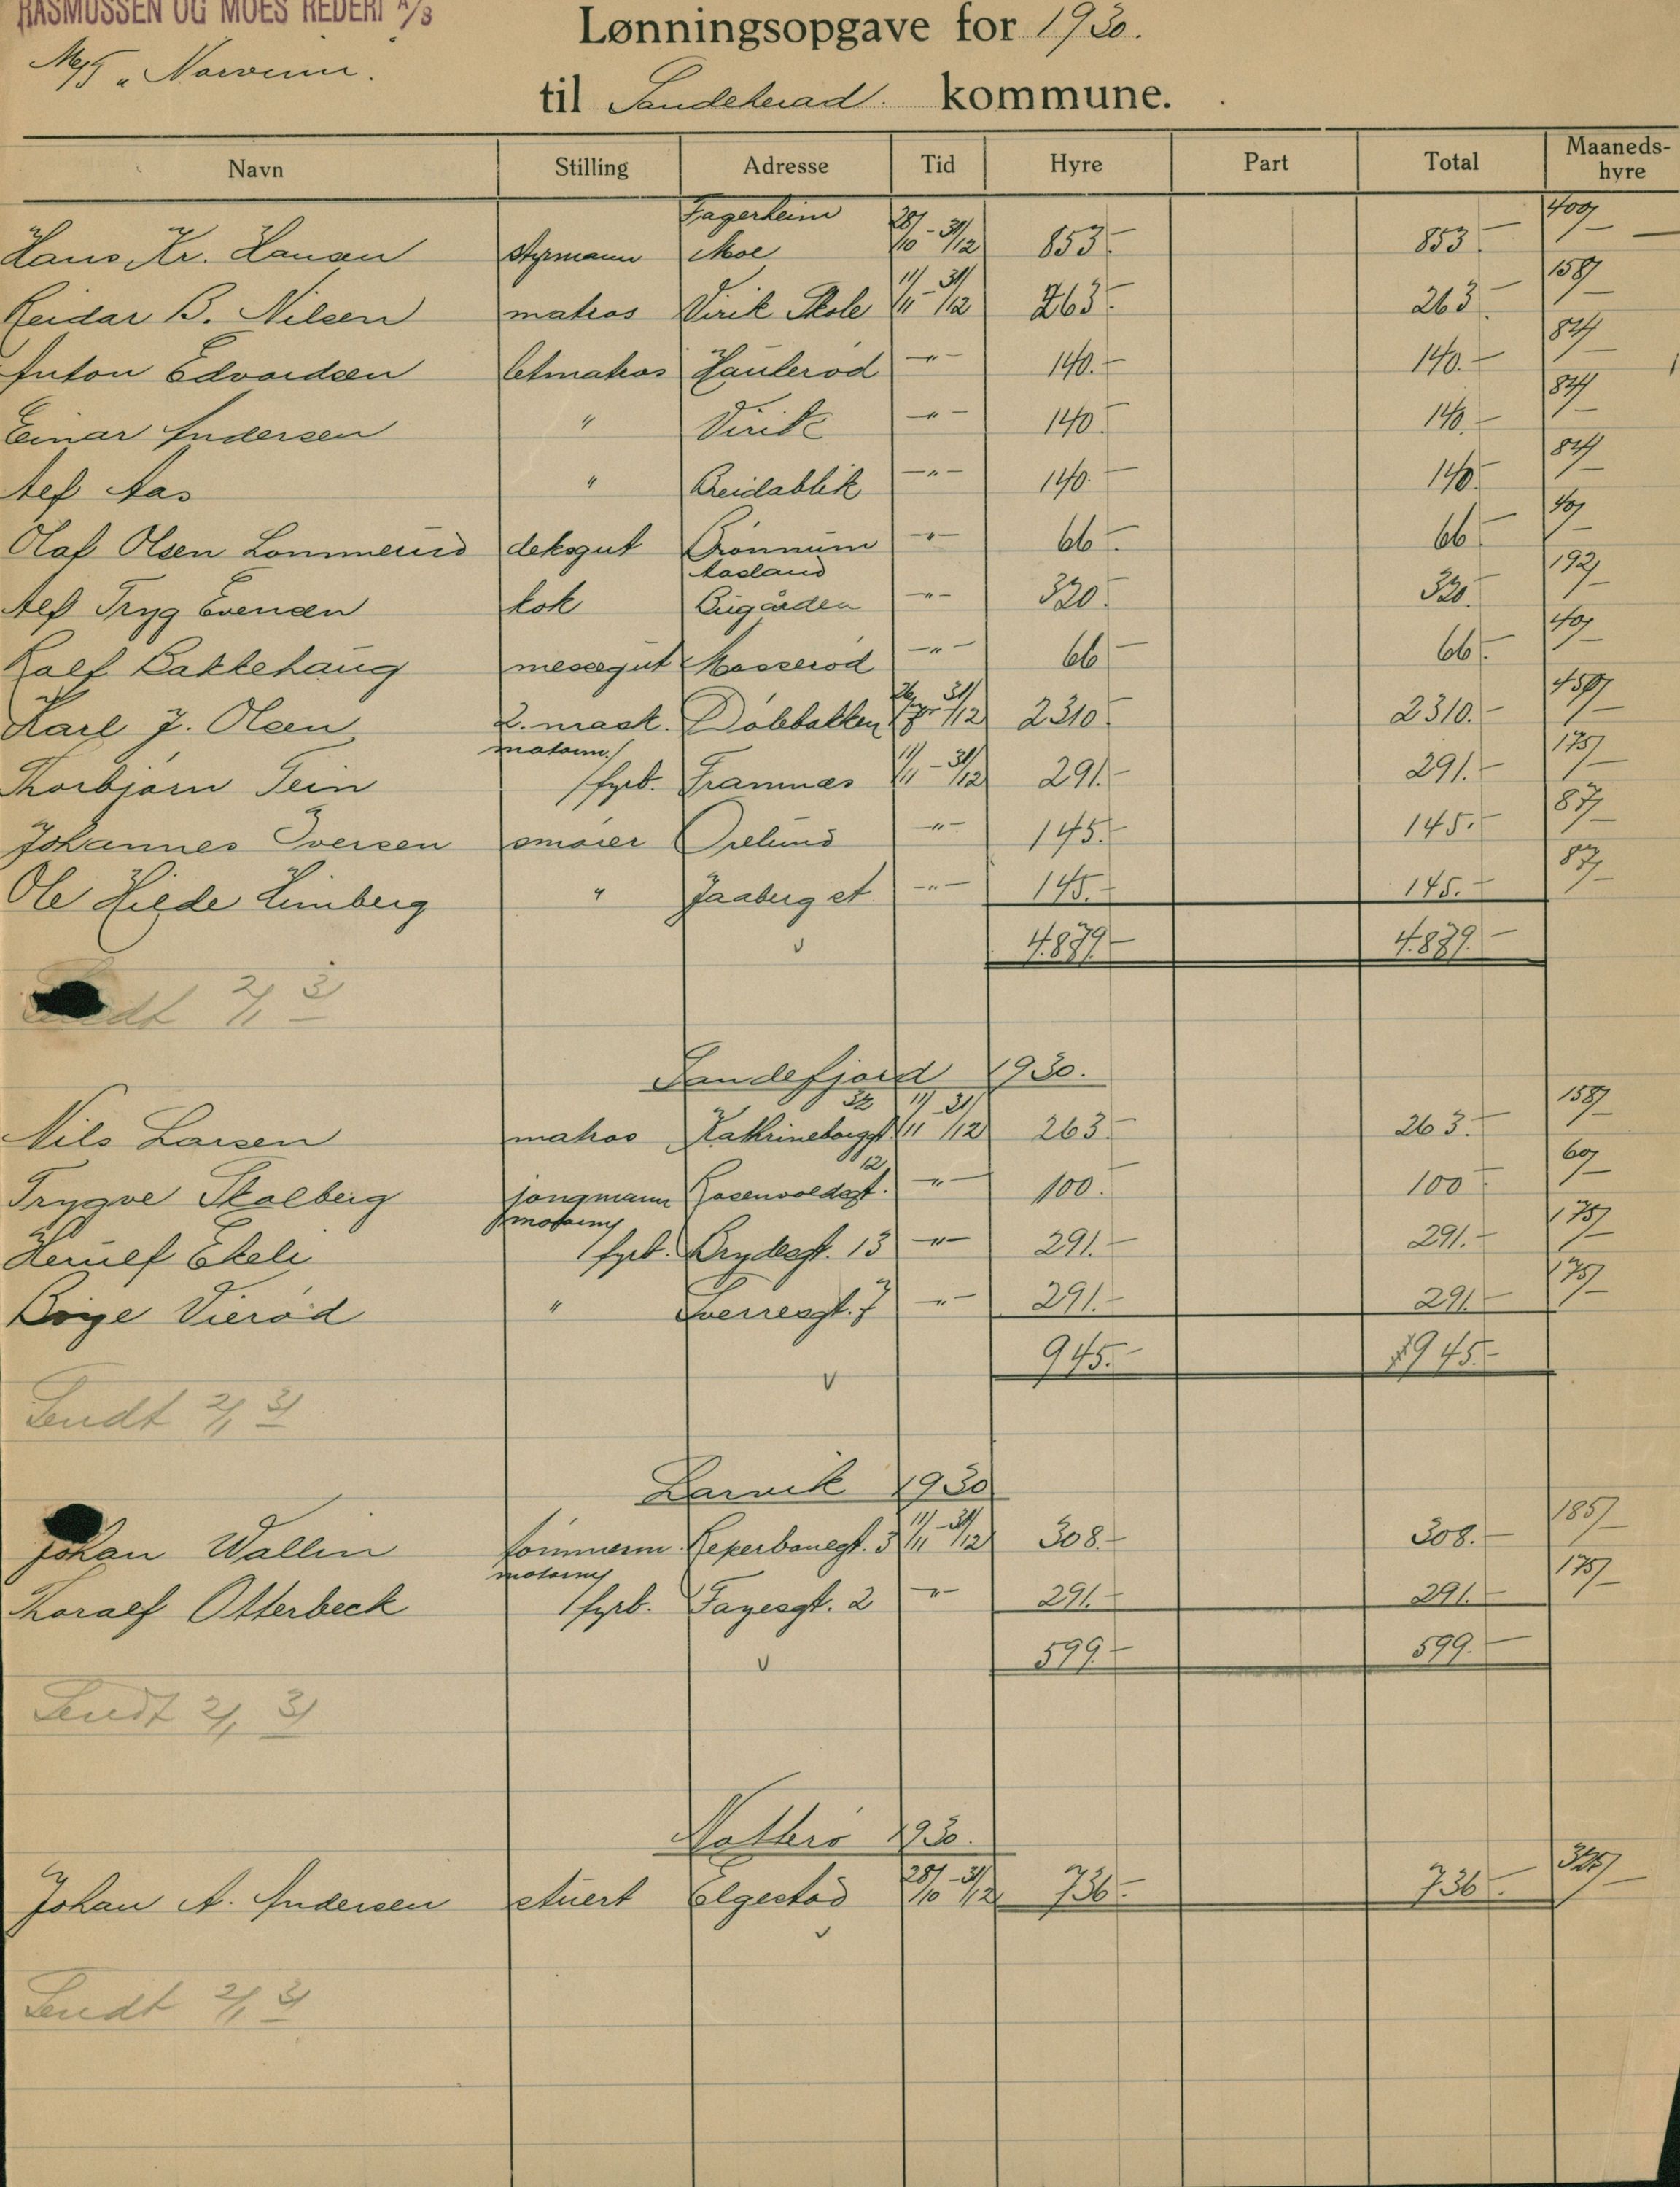 RASMUSSEN OG MOES REDERI A/S
M/T "Norvinn".
Lønningsopgave for 1930.
til Sandeherad kommune.
Navn Stilling Adresse Tid Hyre Part Total Maaneds-hyre
Hans Kr. Hansen styrmann Fagerheim Moe 28/10 - 31/12 853.- 853.- 400/-
Reidar B. Nilsen matros Virik Skole 11/11 - 31/12 263.- 263.- 158/-
Anton Edvardsen letmatros Haukerød -"- 140.- 140.- 84/-
Einar Andersen " Virik -"- 140.- 140.- 84/-
Alf Aas " Breidablik -"- 140.- 140.- 84/-
Olaf Olsen Lommerud deksgut Brønnum -"- 66.- 66.- 40/-
Alf Tryg Evensen kok Aasland Bugården -"- 320.- 320.- 192/-
Ralf Bakkehaug messegut Mosserød -"- 66.- 66.- 40/-
Karl J. Olsen 2. mask. Dølebakken 31/12 2310.- 2310.- 450/-
Thorbjørn Tein motorm./fyrb. Framnæs 11/11 - 31/12 291.- 291.- 175/-
Johannes Iversen smører Orelund -"- 145.- 145.- 87/-
Ole Hilde Himberg " Jaaberg st. -"- 145.- 145.- 87/-
4.879.- 4.879.-
Sendt 2/1 31
Sandefjord 1930.
Nils Larsen matros Kathrineborggt. 32 11/11 - 31/12 263.- 263.- 158/-
Trygve Skalberg jungmann Rosenvoldsgt. 12 -"- 100.- 100.- 60/-
Herulf Ekeli motorm/fyrb. Brydesgt. 13 -"- 291.- 291.- 175/-
Børge Vierød " Sverresgt. 7 -"- 291.- 291.- 175/-
945.- 945.-
Sendt 2/1 31
Larvik 1930
Johan Wallin tømmerm. Reperbanegt. 3 11/11 - 31/12 308.- 308.- 185/-
Thoralf Otterbeck motorm/fyrb. Fayesgt. 2 -"- 291.- 291.- 175/-
599.- 599.-
Sendt 2/1 31
Nøtterø 1930.
Johan A. Andersen stuert Elgestad 28/10 - 31/12 736.- 736.- 345/-
Sendt 2/1 31